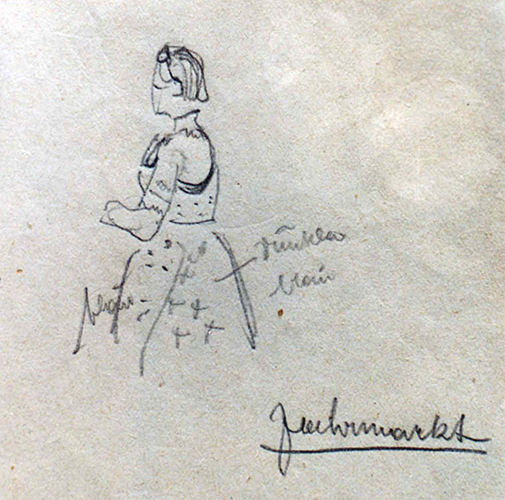 dunkler
blau
Jahrmarkt